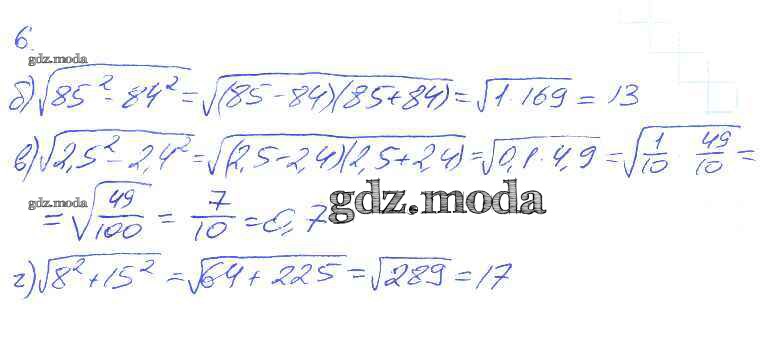 6.
gdz.moda
б) √(85² - 84²) = √((85-84)(85+84)) = √(1·169) = 13
в) √(2,5² - 2,4²) = √((2,5-2,4)(2,5+2,4)) = √(0,1·4,9) = √(1/10 · 49/10) =
gdz.moda = √(49/100) = 7/10 = 0,7 gdz.moda
г) √(8² + 15²) = √(64 + 225) = √289 = 17